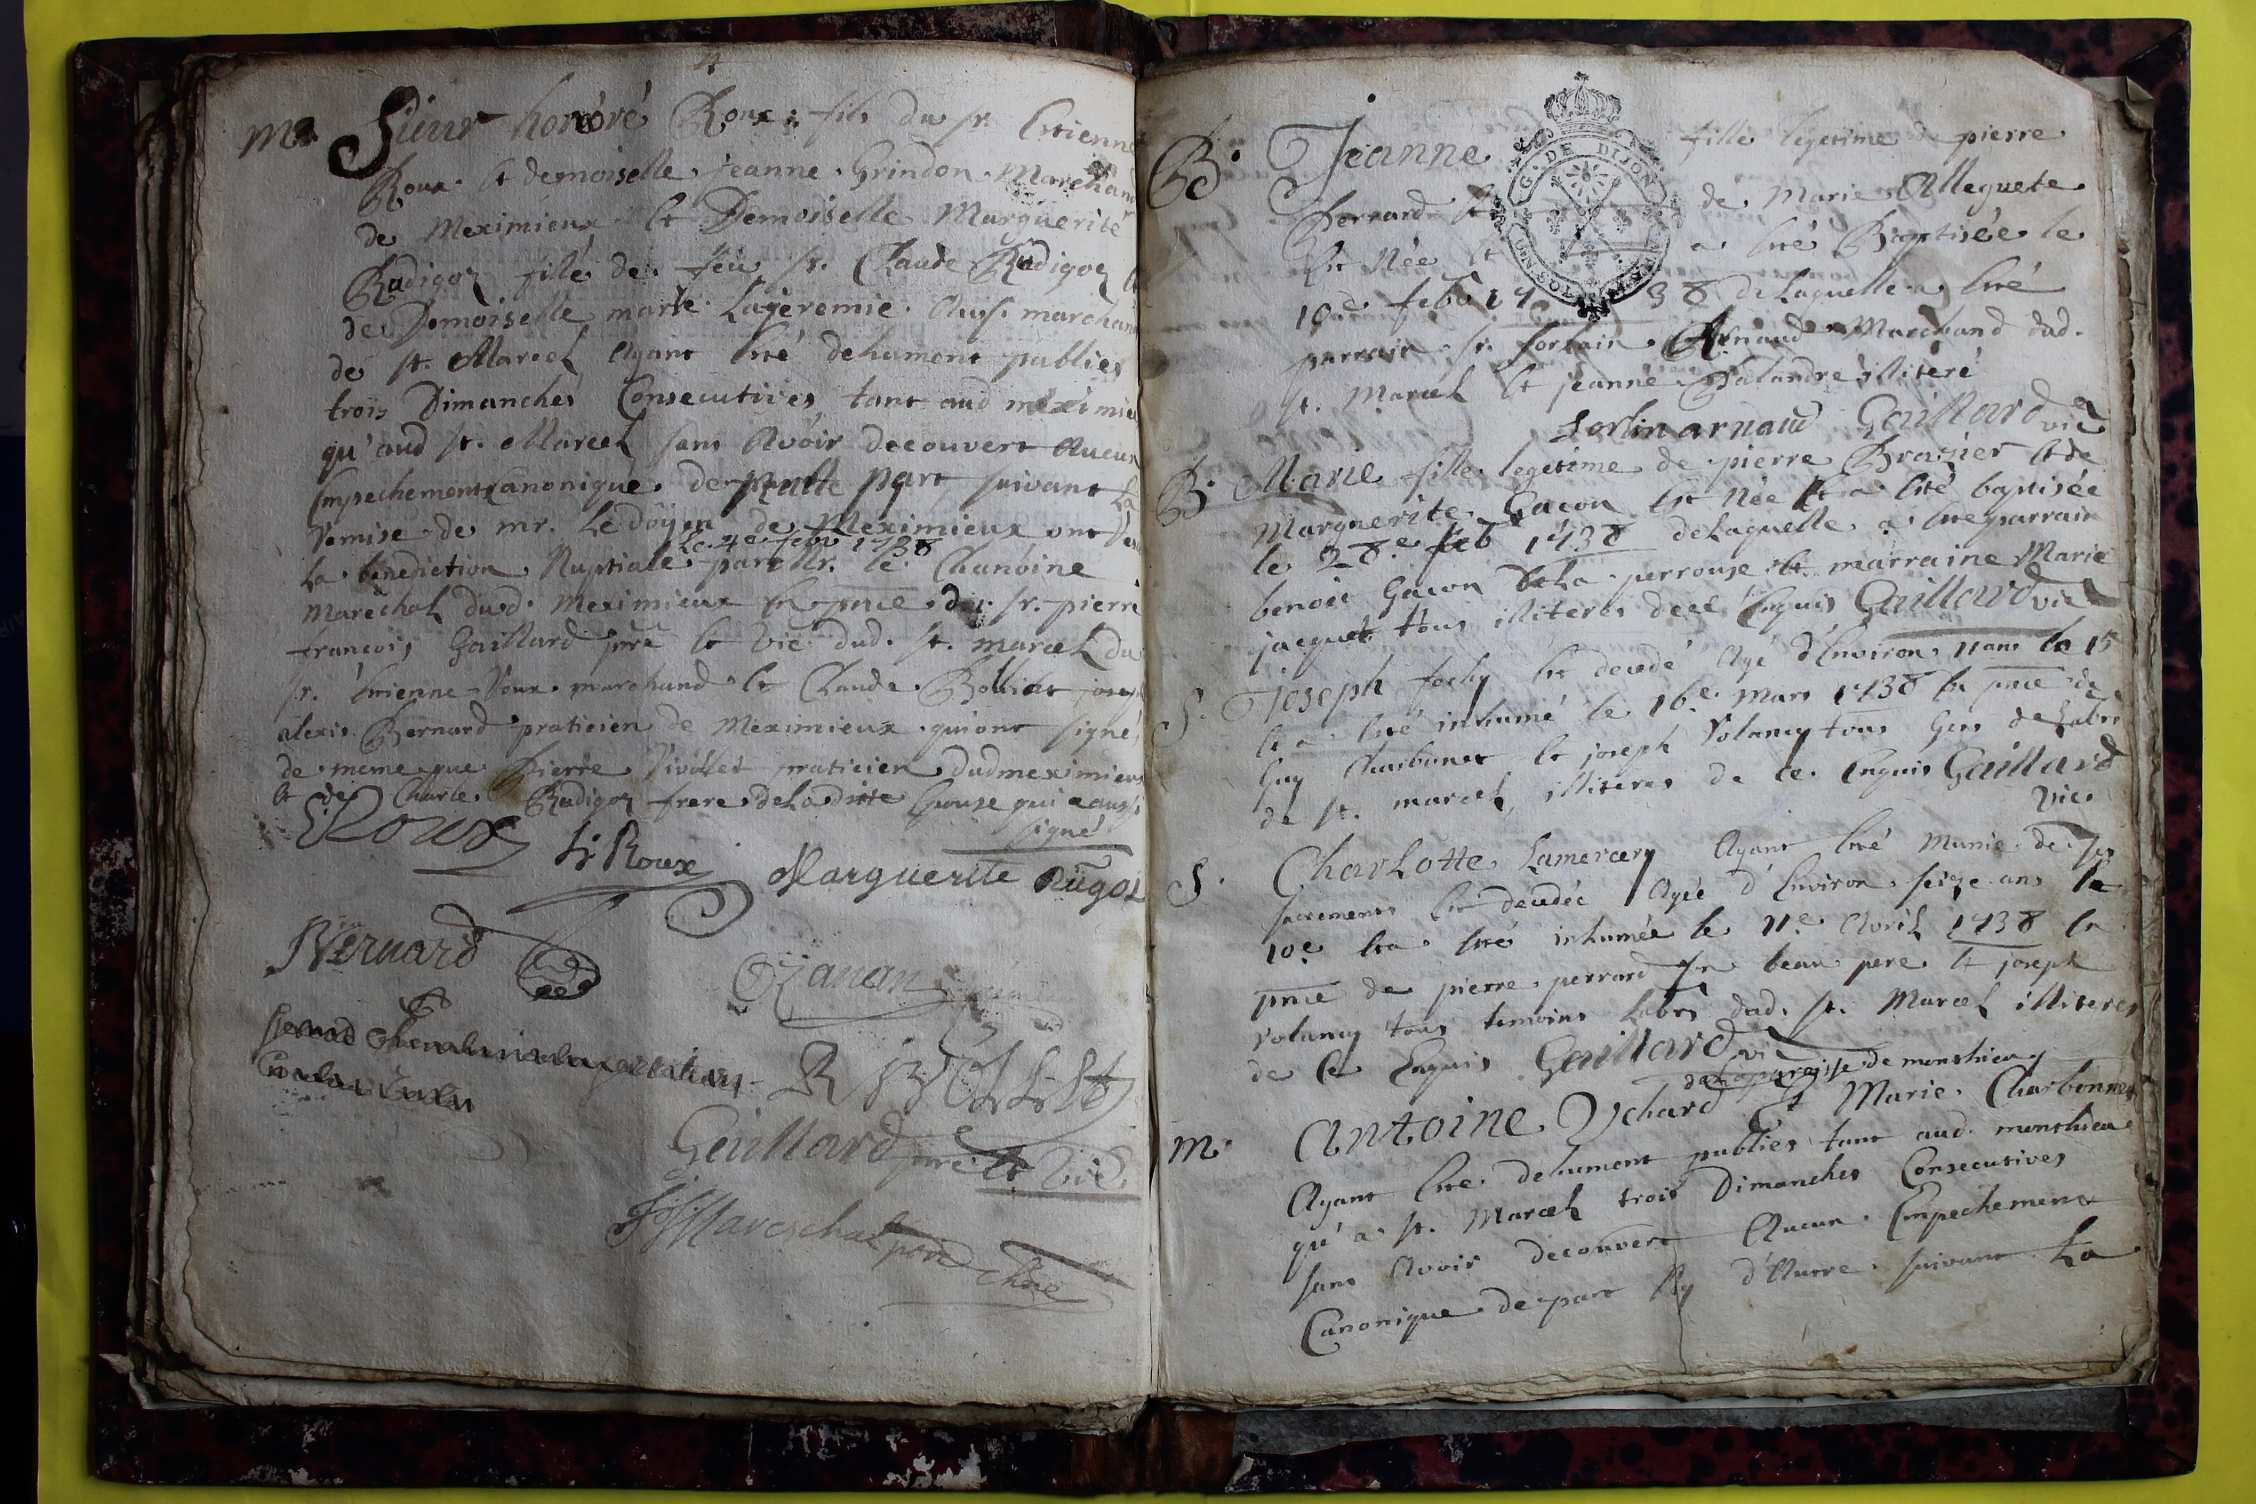 4
M. Sieur honoré Roux fils du sr. Estienne
Roux et demoiselle jeanne Grindon Marchand
de Meximieux et Demoiselle Marguerite
Rudigoz fille de feu sr. Claude Rudigoz et
de Demoiselle marie Lageremie Aussi marchand
de st. Marcel Ayant esté dehument publies
trois Dimanches Consecutives tant aud meximieu
qu'aud st. Marcel sans Avoir decouvert Aucun
Empechement Canonique de nulle part suivant La
remise de mr. Le doÿen de Meximieux ont
Le 4e febr 1738
La benediction Nuptiale par Mr. le Chanoine
Marechal dud. Meximieux En pnce du sr. pierre
françois Gaillard pre et vic dud. st. marcel du
sr. Etienne Roux marchand et Claude joseph
alexis Bernard praticien de Meximieux qui ont signé
de meme que Pierre Rivollet praticien dud meximieux
et de Charle Rudigoz frere de La ditte Epouse qui a aussi
signé
Roux h Roux Marguerite
Bernard
RIVOLLET
Gaillard pre et vic
Mareschal pre chne
B. Jeanne fille legetime de pierre
G. DE DIJON
perrard et de Marie Alleguete
Est Née et a esté Baptisée le
10e febr 1738 de Laquelle a esté
parrain sr. forlain Arnaud Marchand dud.
st. Marcel et jeanne illiteré
forlin arnaud Gaillard vic
B. Marie fille legetime de pierre Brasier et de
Marguerite Gacon Est Née Et a esté baptisée
le 28e feb 1738 de Laquelle a esté parrain
benoit Gacon de La perrouse et marraine Marie
jacquet tous illiteres de ce Enquis Gaillard vic
S. Joseph fochy Est decedé Agé d'Environ 11 ans le 15
Et a esté inhumé le 16e. Mars 1738 En pnce de
Guy Charbonet et joseph Volancy tous Gens de Labrs
de st. marcel illiteres de ce Enquis Gaillard
vic.
S. CharLotte Lamercery Ayant Esté Munie de ses
sacrements Est decedée Agée d'Environ seize ans le
10e Et a esté inhumée le 11e. Avril 1738 En
pnce de pierre perrard son beau pere et joseph
Volancy tous temoins Labrs dud. st. Marcel illiteres
de Ce Enquis Gaillard vic
de La paroisse de monthieu
M. Antoine Ochard Et Marie Charbonnet
Ayant Esté dehument publiés tant aud. monthieu
qu'a st. Marcel trois Dimanches Consecutives
sans Avoir decouvert Aucun Empechement
Canonique de part Ny d'Autre suivant La